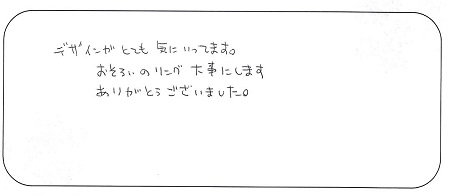 デザインがとても気にいってます。
おそろいのリング大事にします
ありがとうございました。